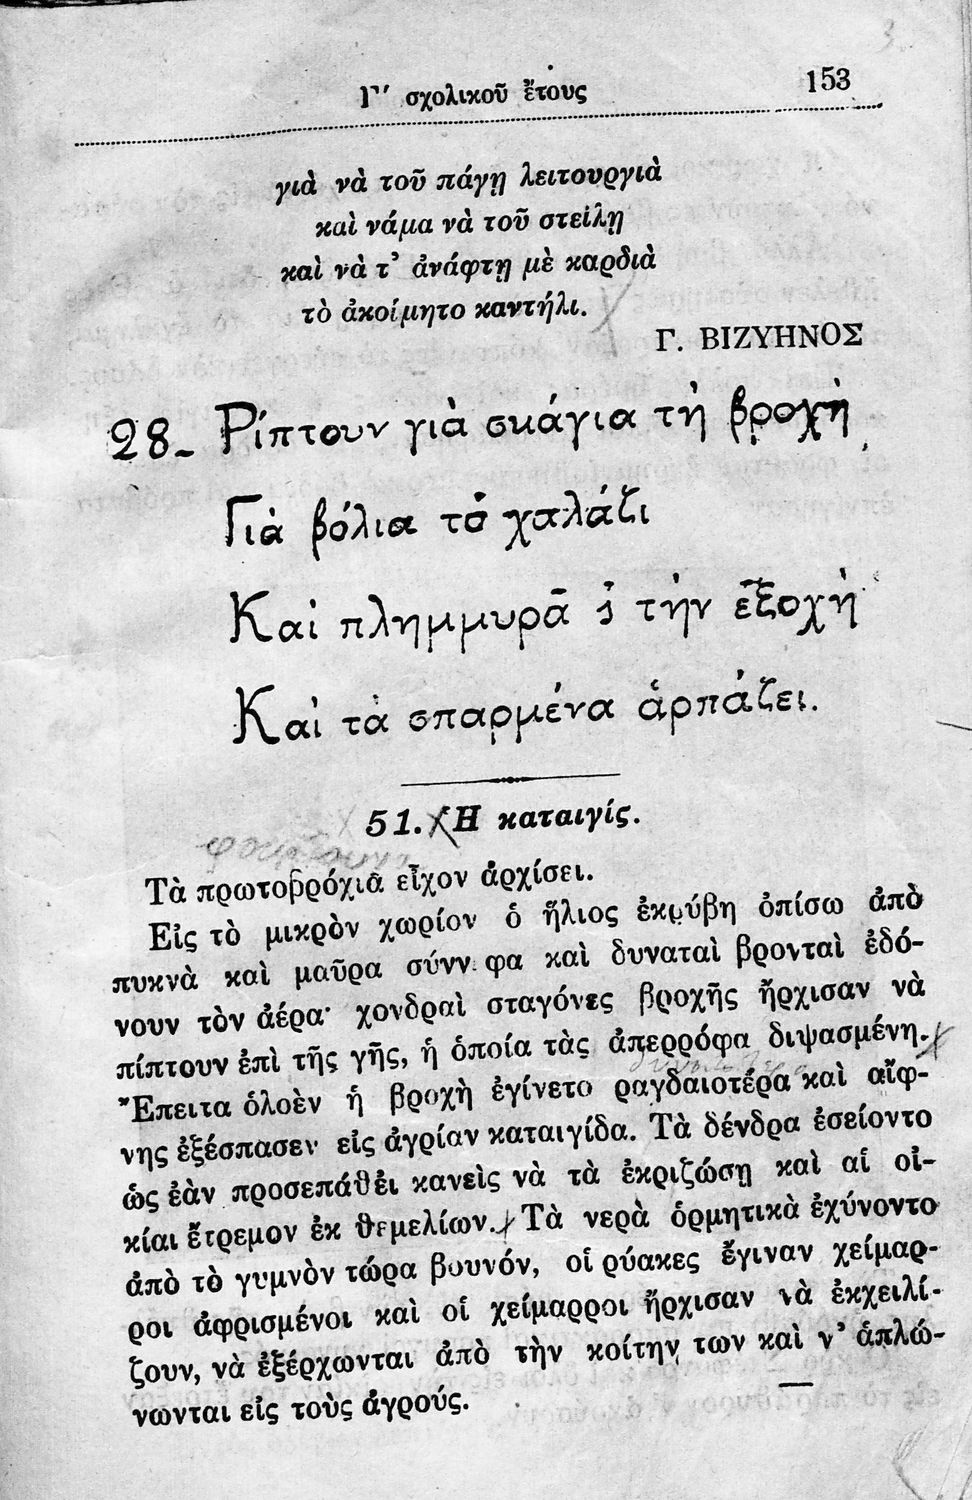 Γ′ σχολικοῦ ἔτους
153
γιὰ νὰ τοῦ πάγῃ λειτουργιὰ
καὶ νάμα νὰ τοῦ στείλῃ
καὶ νὰ τ’ ἀνάφτῃ μὲ καρδιὰ
τὸ ἀκοίμητο καντήλι.
Γ. ΒΙΖΥΗΝΟΣ
28- Ρίπτουν γιὰ σκάγια τὴ βροχὴ,
Γιὰ βόλια τὸ χαλάζι
Καὶ πλημμυρᾶ ς τὴν ἐξοχὴ
Καὶ τὰ σπαρμένα ἁρπάζει.
51. Ἡ καταιγίς.
Τὰ πρωτοβρόχια εἶχον ἀρχίσει.
Εἰς τὸ μικρὸν χωρίον ὁ ἥλιος ἐκρύβη ὀπίσω ἀπὸ
πυκνὰ καὶ μαῦρα σύννεφα καὶ δυναταὶ βρονταὶ ἐδό-
νουν τὸν ἀέρα· χονδραὶ σταγόνες βροχῆς ἤρχισαν νὰ
πίπτουν ἐπὶ τῆς γῆς, ἡ ὁποία τὰς ἀπερρόφα διψασμένη.
Ἔπειτα ὁλοὲν ἡ βροχὴ ἐγίνετο ραγδαιοτέρα καὶ αἴφ-
νης ἐξέσπασεν εἰς ἀγρίαν καταιγίδα. Τὰ δένδρα ἐσείοντο
ὡς ἐὰν προσεπάθει κανεὶς νὰ τὰ ἐκριζώσῃ καὶ αἱ οἰ-
κίαι ἔτρεμον ἐκ θεμελίων. Τὰ νερὰ ὁρμητικὰ ἐχύνοντο
ἀπὸ τὸ γυμνὸν τώρα βουνόν, οἱ ρύακες ἔγιναν χείμαρ-
ροι ἀφρισμένοι καὶ οἱ χείμαρροι ἤρχισαν νὰ ἐκχειλί-
ζουν, νὰ ἐξέρχωνται ἀπὸ τὴν κοίτην των καὶ ν’ ἁπλώ-
νωνται εἰς τοὺς ἀγρούς.